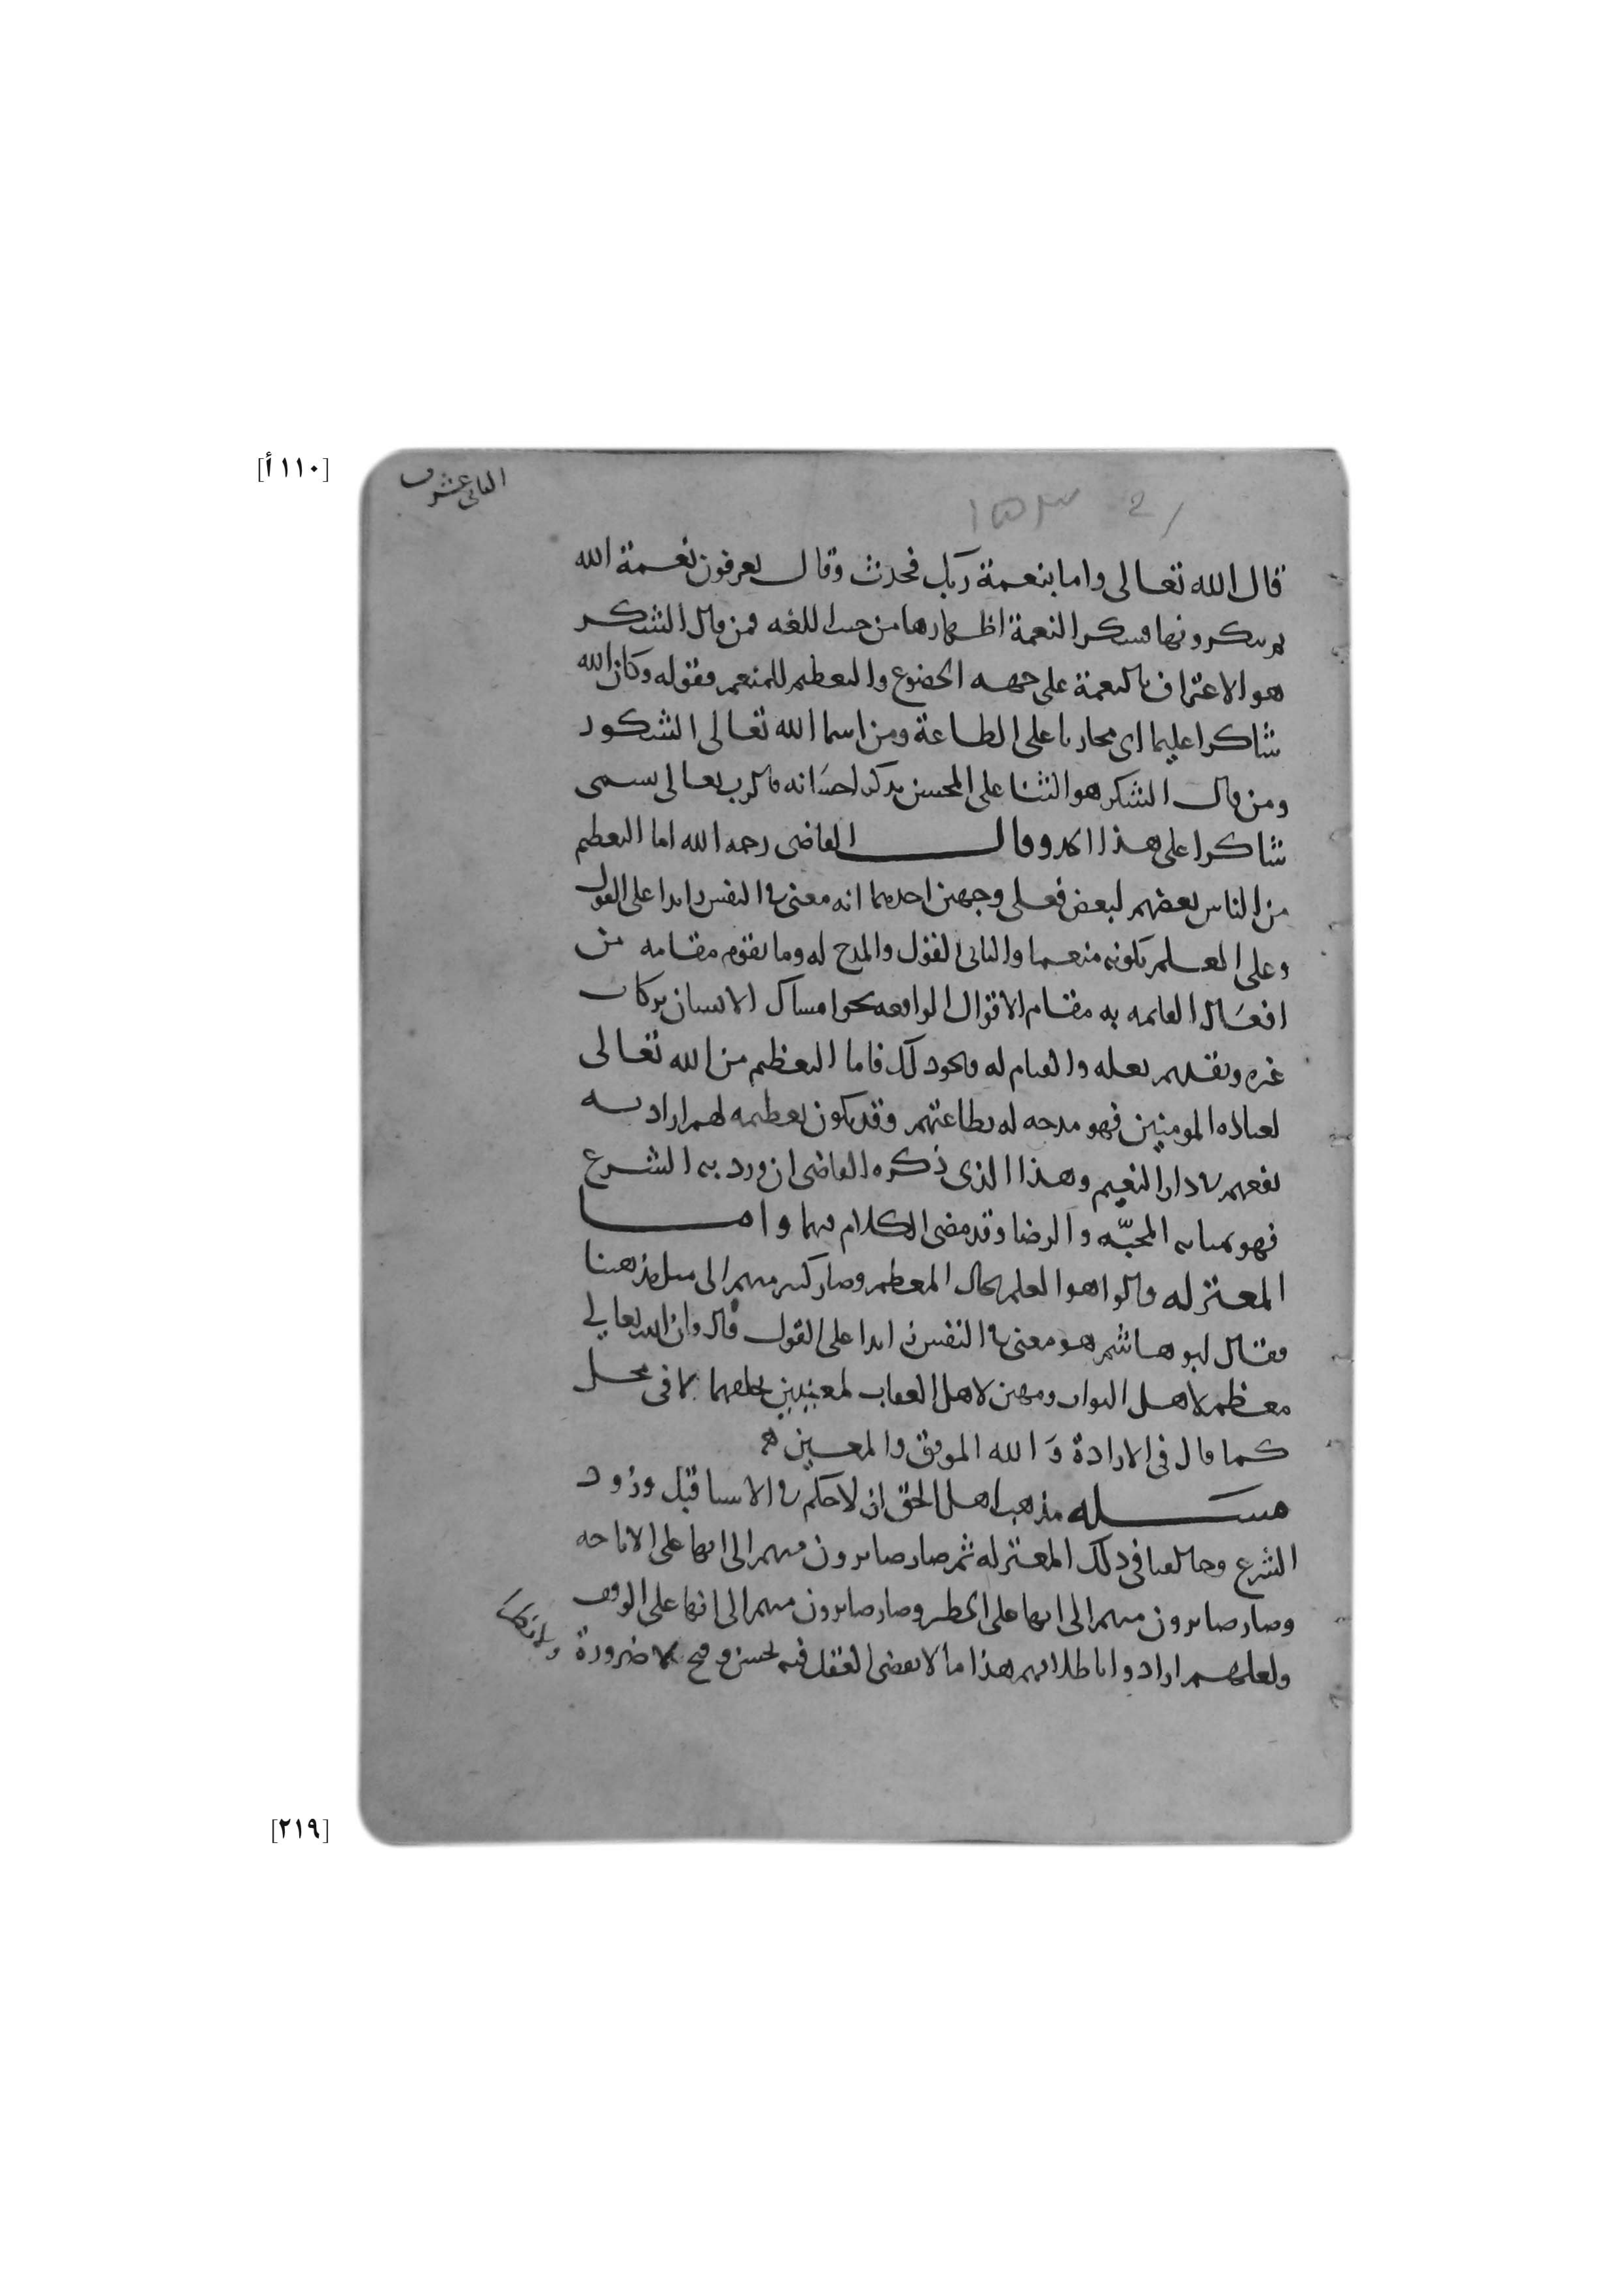 [١١٠ أ]
الثاني عشر
١٥٣
قال الله تعالى واما بنعمة ربك فحدث وقال يعرفون نعمة الله
ثم ينكرونها فشكر النعمة اظهارها من حيث اللغه فمن قال الشكر
هو الاعتراف بالنعمة على جهه الخضوع والتعظيم للمنعم فقوله وكان الله
شاكرا عليما اى مجازيا على الطاعة ومن اسما الله تعالى الشكور
ومن قال الشكر هو الثنا على المحسن بذكر احسَانه فالرب تعالى يسمى
شاكرا على هذا الحد وقال القاضى رحمه الله اما التعظيم
من الناس بعضهم لبعض فعلى وجهين احدهما انه معنى فى النفس زايدا على القول
وعلى العلم بكونه منعما والثانى القول والمدح له وما يقوم مقامه من
افعَال القائمه به مقام الاقوال الواقعه نحو امساك الانسان بركاب
غيره وتقديم نعله والقيام له ونحو ذلك فاما التعظيم من الله تعالى
لعباده المومنين فهو مدحه له بطاعتهم وقد يكون تعظيمه لهم ارادته
نفعهم فى دار النعيم وهذا الذى ذكره القاضى ان ورد به الشرع
فهو بمثابه المحبّه والرضا وقد مضى الكلام فيهما واما
المعتزله قالوا هو العلم بحال المعظم وصار كثير منهم الى مثل مذهبنا
فقال ابو هاشم هو معنى فى النفس زايدا على القول قال وان الله تعالى
معظم لاهل الثواب ومهين لاهل العقاب لمعنيين يخلقهما لا فى محل
كما قال فى الارادة وَالله الموفق والمعين
مسَله مذهب اهل الحق ان لا حكم فى الاشيا قبل ورُود
الشرع وخالفنا فى ذلك المعتزله ثم صار صايرون منهم الى انها على الاباحه
وصار صايرون منهم الى انها على الحظر وصار صايرون منهم الى انها على الوقف
ولعلهم ارادوا باطلاقهم هذا ما لا يقضى العقل فيه بحسن وقبح لا ضرورة
[٢١٩]